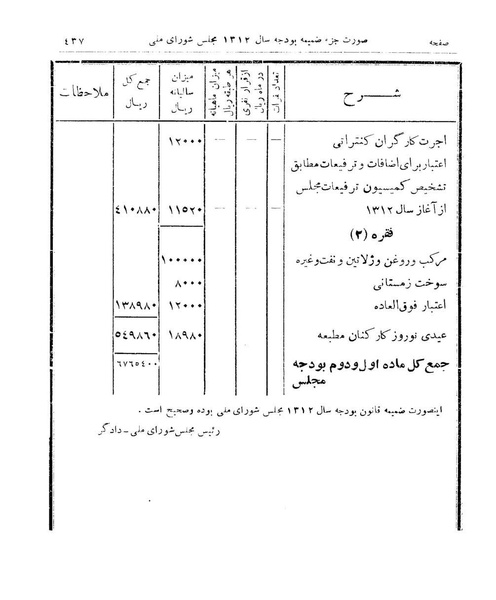 صفحه صورت جزء ضمیمه بودجه سال ۱۳۱۲ مجلس شورای ملی ۴۳۷
شرح تعداد نفرات ازقرار نفری در ماه ریال میزان ماهیانه هر طبقه ریال میزان سالیانه ریال جمع کل ریال ملاحظات
اجرت کارگران کنتراتی — — — ۱۲۰۰۰
اعتبار برای اضافات و ترفیعات مطابق
تشخیص کمیسیون ترفیعات مجلس
از آغاز سال ۱۳۱۲ — — — ۱۱۵۲۰ ۴۱۰۸۸۰
فقره (۲)
مرکب وروغن وژلاتین و نفت وغیره ۱۰۰۰۰۰
سوخت زمستانی ۸۰۰۰
اعتبار فوق العاده ۱۲۰۰۰ ۱۳۸۹۸۰
عیدی نوروز کارکنان مطبعه ۱۸۹۸۰ ۵۴۹۸۶۰
جمع کل ماده اول ودوم بودجه ۶۷۶۵۴۰۰
مجلس
اینصورت ضمیمه قانون بودجه سال ۱۳۱۲ مجلس شورای ملی بوده وصحیح است .
رئیس مجلس شورای ملی - دادگر